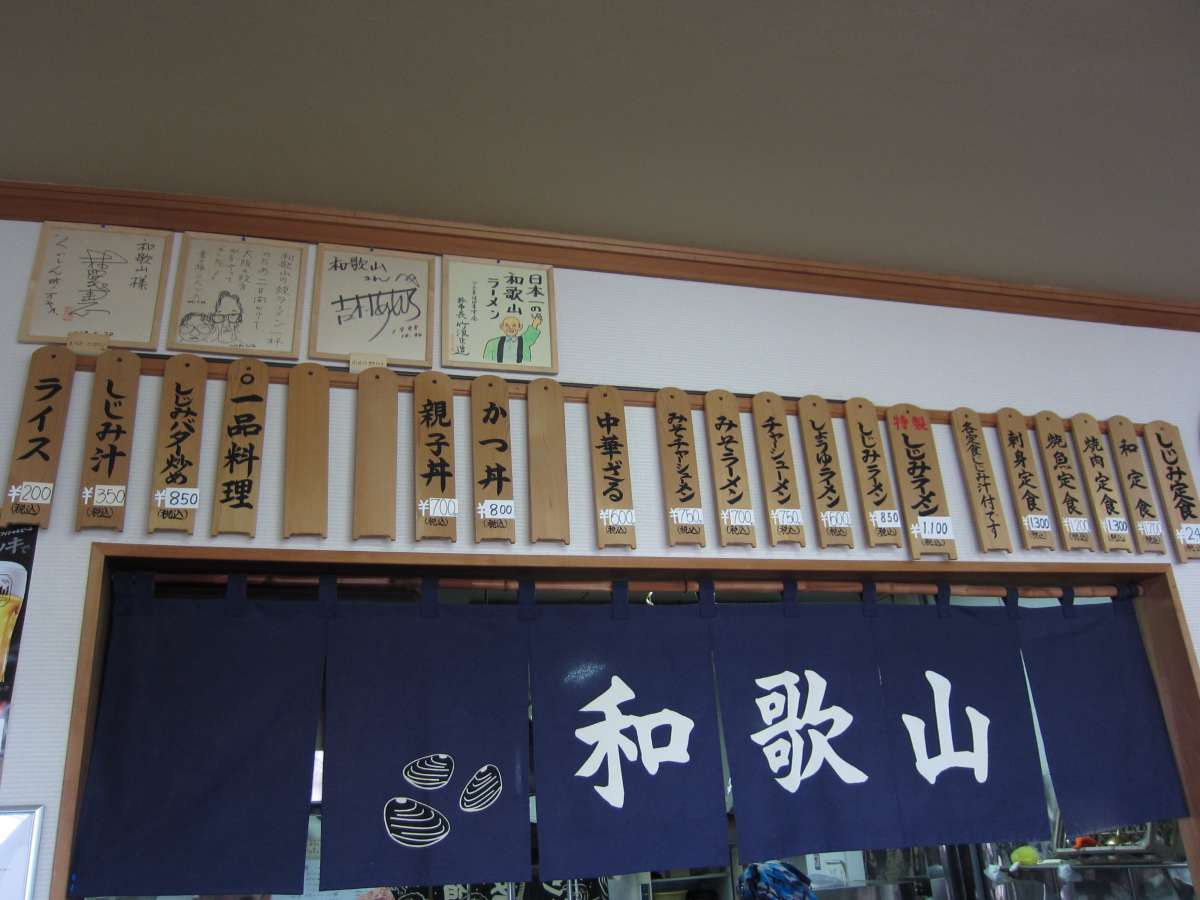 和歌山様
日本一の
和歌山
ラーメン
和歌山
さん江
ライス
¥200
(税込)
しじみ汁
¥350
(税込)
しじみバター炒め
¥850
(税込)
一品料理
親子丼
¥700
(税込)
かつ丼
¥800
(税込)
中華ざる
¥600
(税込)
みそチャーシューメン
(税込)
みそラーメン
¥700
(税込)
チャーシューメン
¥750
(税込)
しょうゆラーメン
¥600
(税込)
しじみラーメン
¥850
(税込)
特製しじみラーメン
¥1.100
(税込)
各定食しじみ汁付です
刺身定食
¥1300
(税込)
焼魚定食
¥1200
(税込)
焼肉定食
¥1.300
(税込)
和定食
(税込)
しじみ定食
(税込)
和歌山